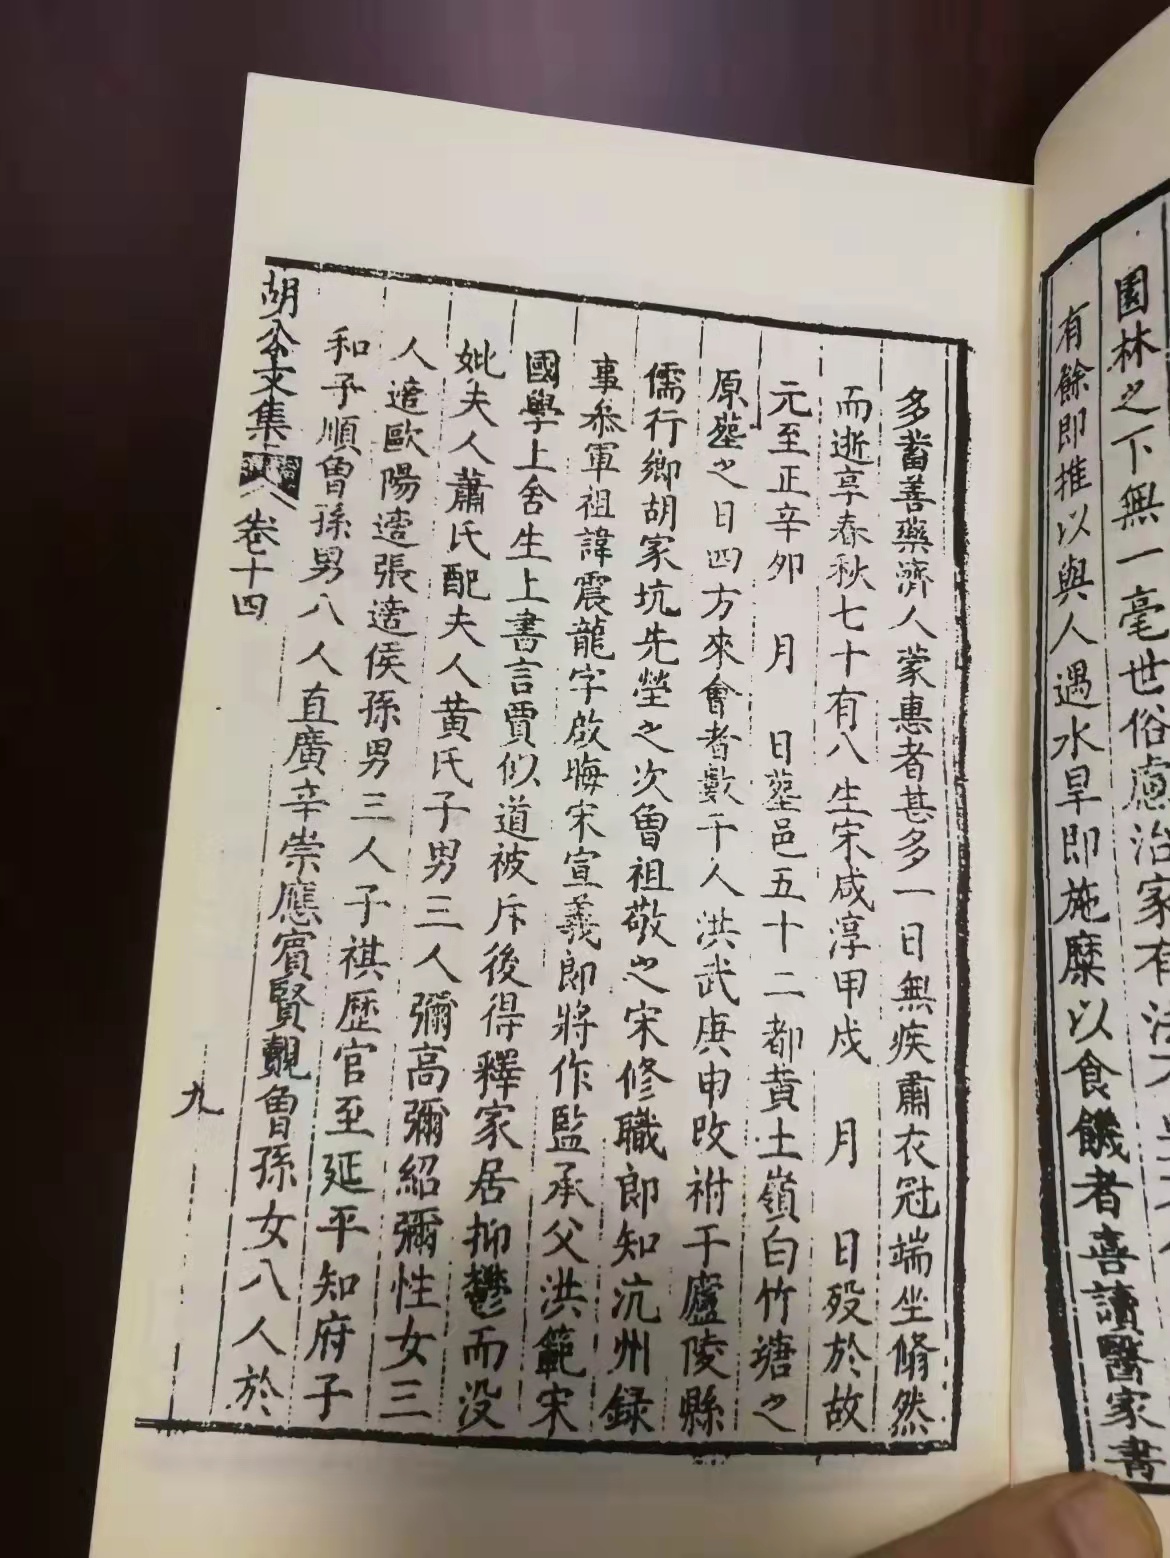 園林之下無一毫世俗慮治家有法
有餘即推以與人遇水旱即施糜以食饑者喜讀醫家書
多蓄善藥濟人蒙惠者甚多一日無疾肅衣冠端坐翛然
而逝享春秋七十有八生宋咸淳甲戌 月 日歿於故
元至正辛卯 月 日塟邑五十二都黄土嶺白竹塘之
原塟之日四方來會者數千人洪武庚申改祔于廬陵縣
儒行鄉胡家坑先塋之次曾祖敬之宋修職郎知沆州録
事叅軍祖諱震龍字啟晦宋宣義郎將作監丞父洪範宋
國學上舍生上書言賈似道被斥後得釋家居抑鬱而没
妣夫人蕭氏配夫人黄氏子男三人彌高彌紹彌性女三
人適歐陽適張適侯孫男三人子祺歷官至延平知府子
和子順曾孫男八人直廣辛崇應賓賢覿曾孫女八人於
胡公文集 卷十四
九